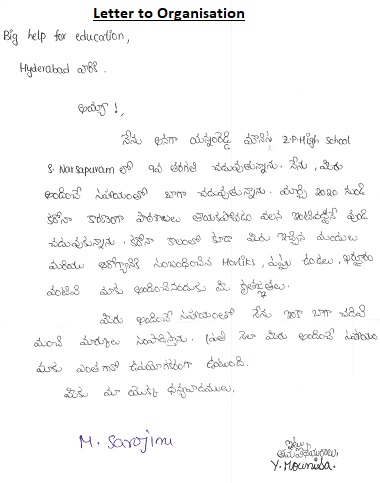 Letter to Organisation
Big help for education,
Hyderabad వారికి.
అయ్యా !,
నేను అనగా యన్నంరెడ్డి మౌనిస Z.P.High school
S. Narsapuram లో 9వ తరగతి చదువుతున్నాను. నేను, మీరు
అందించే సహాయంతో బాగా చదువుతున్నాను. మార్చి 2020 నుండి
కరోనా కారణంగా పాఠశాలలు తెరుచుకపోవడం వలన ఇంటివద్దనే ఉండి
చదువుకున్నాను. కరోనా కాలంలో కూడా మీరు ఇచ్చిన మందులు
మరియు ఆరోగ్యానికి సంబంధించిన Horliks, పప్పు ఉండలు, ఖర్జూరం
వంటివి మాకు అందించినందుకు మీ కృతజ్ఞతలు.
మీరు అందించే సహాయంలతో నేను ఇంకా బాగా చదివి
మంచి మార్కులు సంపాదిస్తాను. ప్రతి నెలా మీరు అందించే సహాయం
మాకు ఎంతగానో ఉపయోగకరంగా ఉంటుంది.
మీకు మా యొక్క ధన్యవాదములు.
M. Sarojini
ఇట్లు,
Y. Mounisa.